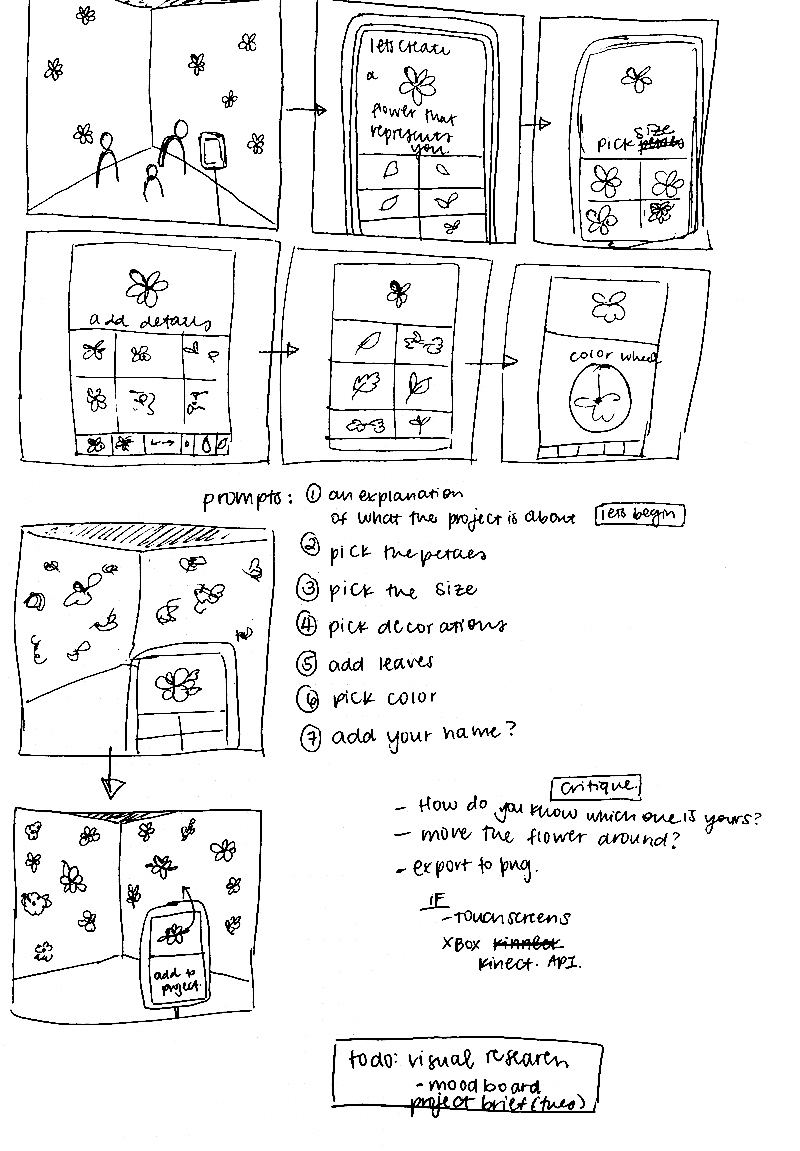 lets create
a
flower that
represents
you.
size
pick petals
add details
color wheel
prompts: ① an explanation
of what the project is about lets begin
② pick the petaes
③ pick the size
④ pick decorations
⑤ add leaves
⑥ pick color
⑦ add your name?
critique
- How do you know which one is yours?
- move the flower around?
- export to png.
IF
- Touchscreens
XBOX kinnect
kinect. API.
add to
project.
todo: visual research
- mood board
project brief (tues)